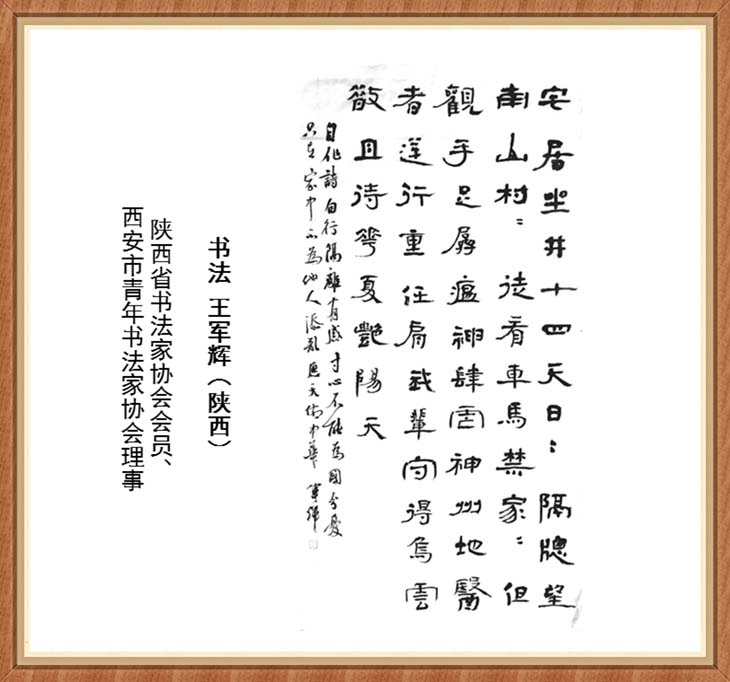 宅居坐井十四天日〻隔牕望
南山村〻徒看車馬禁家〻但
觀手足孱瘟神肆神州地醫
者逆行重任肩我輩守得烏雲
散且待華夏艷陽天
自作詩自行隔離有感寸心不能為國分憂
只在家中不為他人添亂愿天佑中華 軍輝
书法 王军辉（陕西）
陕西省书法家协会会员、
西安市青年书法家协会理事